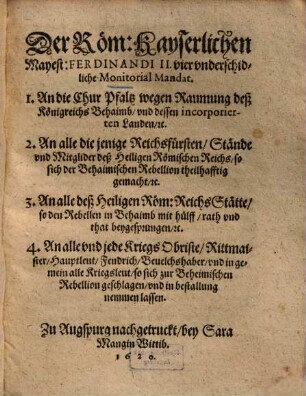 Der Röm: Kayserlichen
Mayest: FERDINANDI II. vier vnderschid-
liche Monitorial Mandat.
1. An die Chur Pfaltz wegen Raumung deß
Königreichs Behaimb/ vnd dessen incorporier-
ten Landen/ꝛc.
2. An alle die jenige Reichsfürsten/ Stände
vnd Mitglider deß Heiligen Römischen Reichs/ so
sich der Behaimischen Rebellion theilhafftig
gemacht/ꝛc.
3. An alle deß Heiligen Röm: Reichs Stätte/
so den Rebellen in Behaimb mit hülff/ rath vnd
that beygesprungen/ꝛc.
4. An alle vnd jede Kriegs Obriste/ Rittmai-
ster/ Hauptleut/ Fendrich/ Beuelchshaber/ vnd in ge-
mein alle Kriegsleut/ so sich zur Beheimischen
Rebellion geschlagen/ vnd in bestallung
nemmen lassen.
Zu Augspurg nachgetruckt/ bey Sara
Mangin Wittib.
1620.